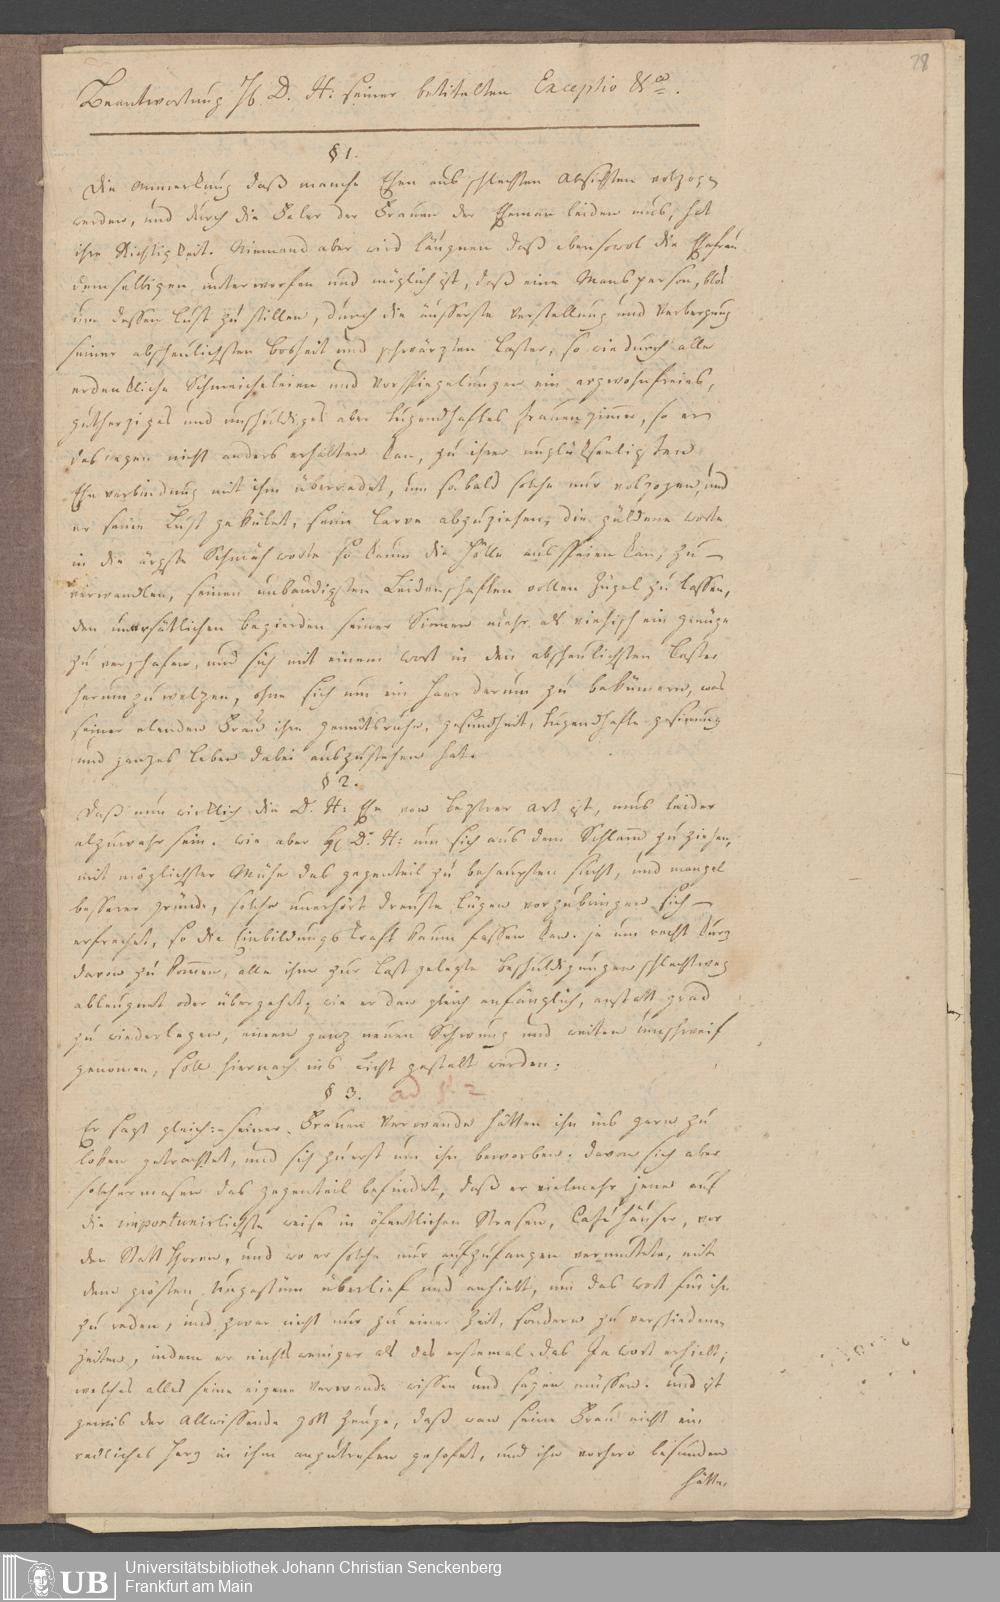 28
Beantwortung H. D. H: seiner betitelten Exceptio &ca.
§ 1.
Die Anmerkung daß manche Ehen aus schlechten Absichten volzogen
werden, und durch die Feler der Frauen der Eheman leiden mus, hat
ihre Richtigkeit. Niemand aber wird läugnen daß ebensowol die Ehefrau
demselbigen unterworfen und möglich ist, daß eine Mansperson, blos
um dessen Lust zu stillen, durch die äusserste Verstellung und Verbergung
seiner abscheulichsten bosheit und schwärzten Laster, so wie durch alle
erdenkliche Schmeicheleien und Vorspiegelungen ein argwohnfreies,
gutherziges und unschuldiges aber tugendhaftes Frauenzimmer, so er
deswegen nicht anders erhalten kan, zu ihrer unglükseeligsten
Ehe verbindung mit ihm überredet, um so bald solche nur volzogen, und
er seine Lust gekület, seine Larve abzuziehen, die güldene worte
in die ärgste Schmäh worte so kaum die Hölle ausspeien kan, zu
verwandlen, seinen unbändigsten Leidenschaften vollen Zügel zu lassen,
den unersätlichen begierden seiner Sinnen mehr als viehisch ein genüge
zu verschafen, und sich mit einem wort in den abscheulichsten Laster
herumzuwelzen, ohne sich um ein Haar darum zu bekümern, was
seiner elenden Frau ihre gemütsruhe, gesundheit, tugendhafte gesinnung
und ganzes Leben dabei auszustehen hat.
§ 2.
Daß nun wirklich die D. H: Ehe von leztrer Art ist, mus leider
alzuwahr sein. wie aber H. D. H: um sich aus dem Schlam zu ziehen,
mit möglichster Mühe das gegenteil zu behaupten sucht, und mangel
besserer gründe, solche unerhört dreuste Lügen vorzubringen sich
erfrechet, so die Einbildungskraft kaum fassen kan. ja um recht kurz
davon zu kommen, alle ihm zur Last gelegte beschuldigungen schlechtweg
ableugnet oder übergehet; wie er dan gleich anfänglich, anstatt grad
zu wiederlegen, einen ganz neuen Schwung und weiten umschweif
genomen, solle hiernach ins Licht gestellt werden.
§ 3. ad §. 2
Er sagt gleich:- seiner Frauen Verwande hätten ihn ins garn zu
loken getrachtet, und sich zuerst um ihn beworben. davon sich aber
solchermasen das gegenteil befindet, daß er vielmehr jene auf
die importunirlichste weise in öfentlichen Strasen, Café häuser, vor
den Statt thoren, und wo er solche nur aufzufangen vermutete, mit
dem grösten Ungestüm überlief und anhielt, um das wort für ihn
zu reden, und zwar nicht nur zu einer Zeit, sondern zu verschiedenen
Zeiten, indem er nichts weniger als das erstemal das Ja wort erhielt;
welches alles seine eigene Verwande wissen und sagen müssen. und ist
gewis der Allwissende gott Zeuge, daß wan seine Frau nicht ein
redliches Herz in ihm anzutrefen gehofet, und ihn vorhero befunden
hätte,
Universitätsbibliothek Johann Christian Senckenberg
Frankfurt am Main
UB